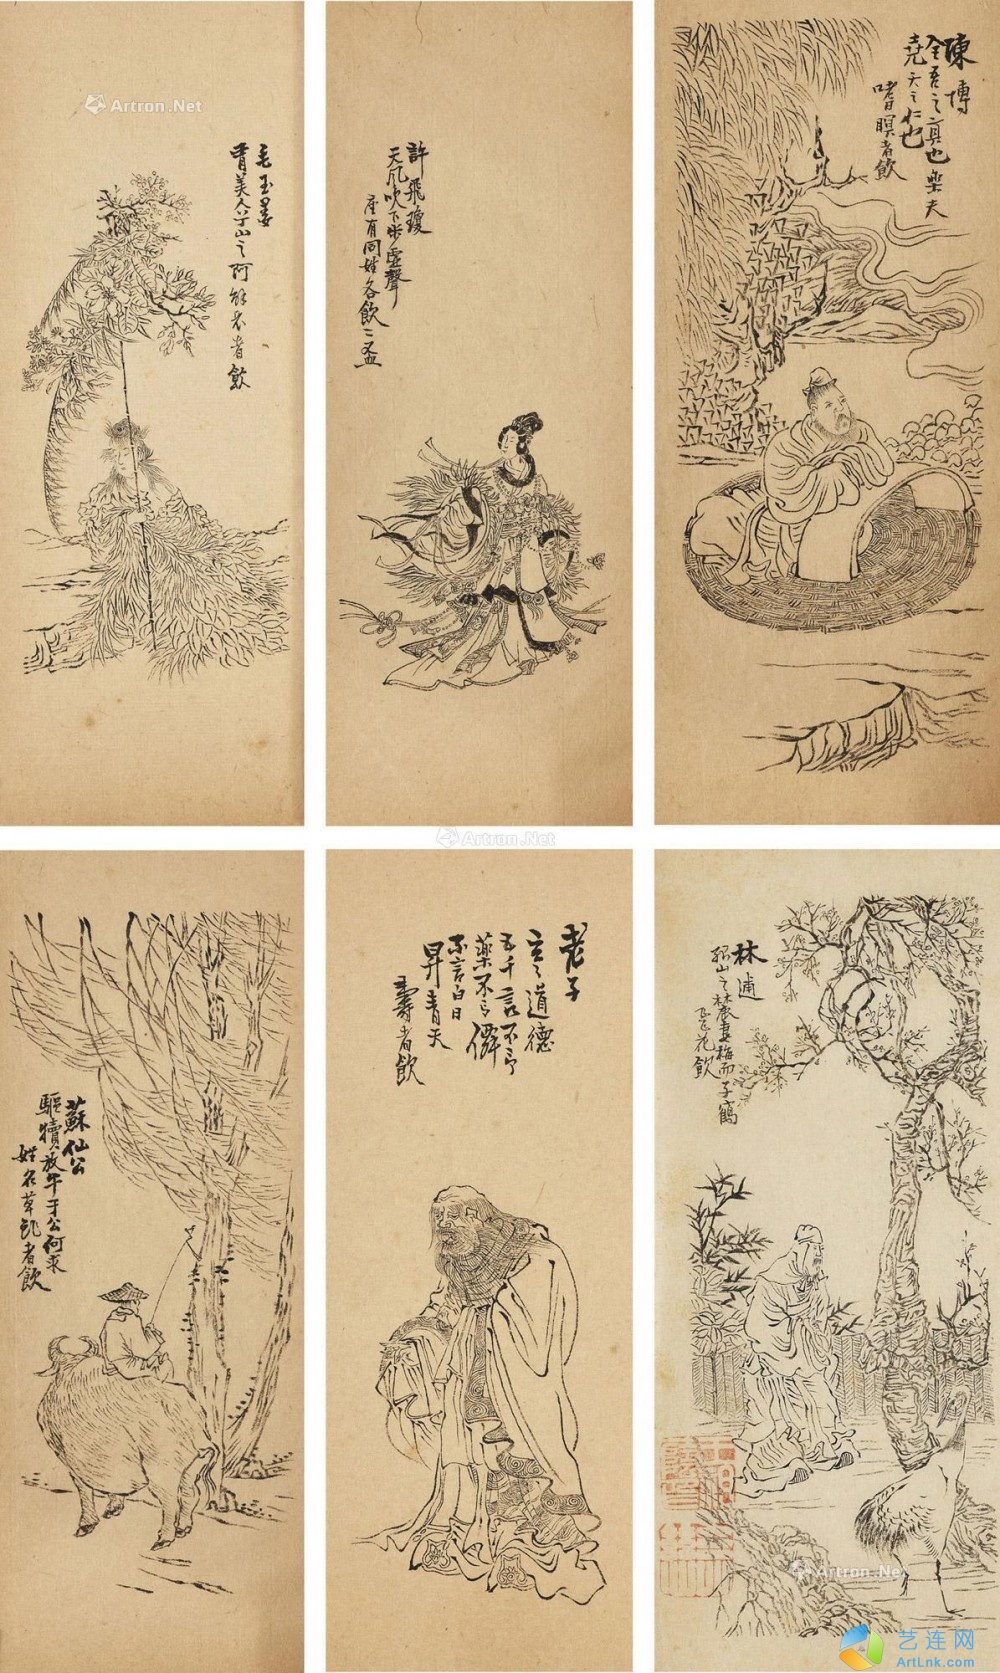 毛玉姜
有美人兮山之阿 解衣者飲
許飛瓊
天風吹下步虛聲
座有同姓各飲二盃
陳摶
全吾之真也樂夫
堯天之仁也
嗜瞑者飲
蘇仙公
驅犢放牛于公何求
姓名草頭者飲
老子
玄之道德
五千言不言
藥不言僊
不言白日
昇青天
壽者飲
林逋
孤山之麓妻梅而子鶴
花飲
Artron.Net
Artron.Net
Artron.Net
艺连网
ArtLnk.com